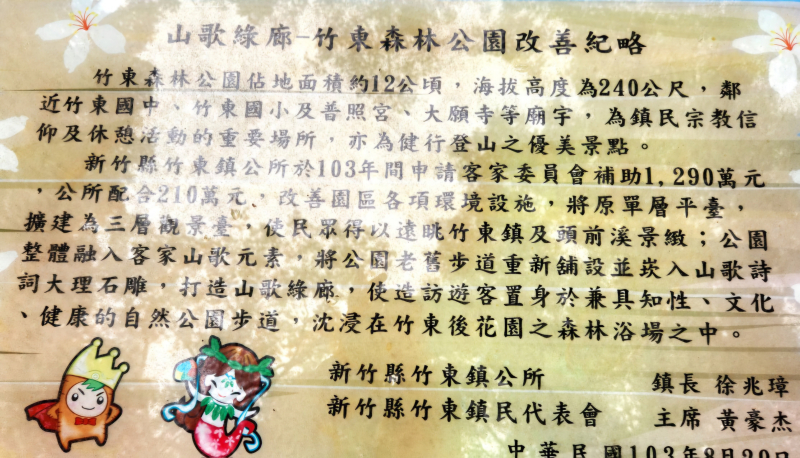 山歌綠廊-竹東森林公園改善紀略
竹東森林公園佔地面積約12公頃，海拔高度為240公尺，鄰
近竹東國中、竹東國小及普照宮、大願寺等廟宇，為鎮民宗教信
仰及休憩活動的重要場所，亦為健行登山之優美景點。
新竹縣竹東鎮公所於103年間申請客家委員會補助1,290萬元
，公所配合210萬元，改善園區各項環境設施，將原單層平臺，
擴建為三層觀景臺，使民眾得以遠眺竹東鎮及頭前溪景緻；公園
整體融入客家山歌元素，將公園老舊步道重新舖設並崁入山歌詩
詞大理石雕，打造山歌綠廊，使造訪遊客置身於兼具知性、文化
、健康的自然公園步道，沈浸在竹東後花園之森林浴場之中。
新竹縣竹東鎮公所 鎮長 徐兆瑋
新竹縣竹東鎮民代表會 主席 黃豪杰
中華民國103年8月29日